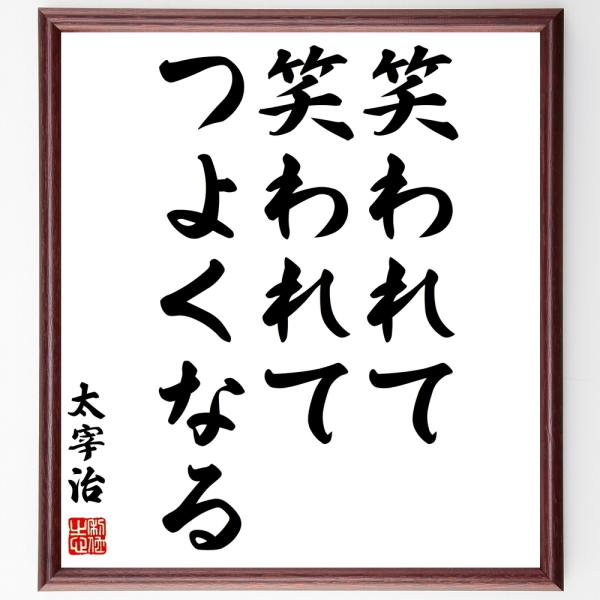 笑われて
笑われて
つよくなる
太宰治